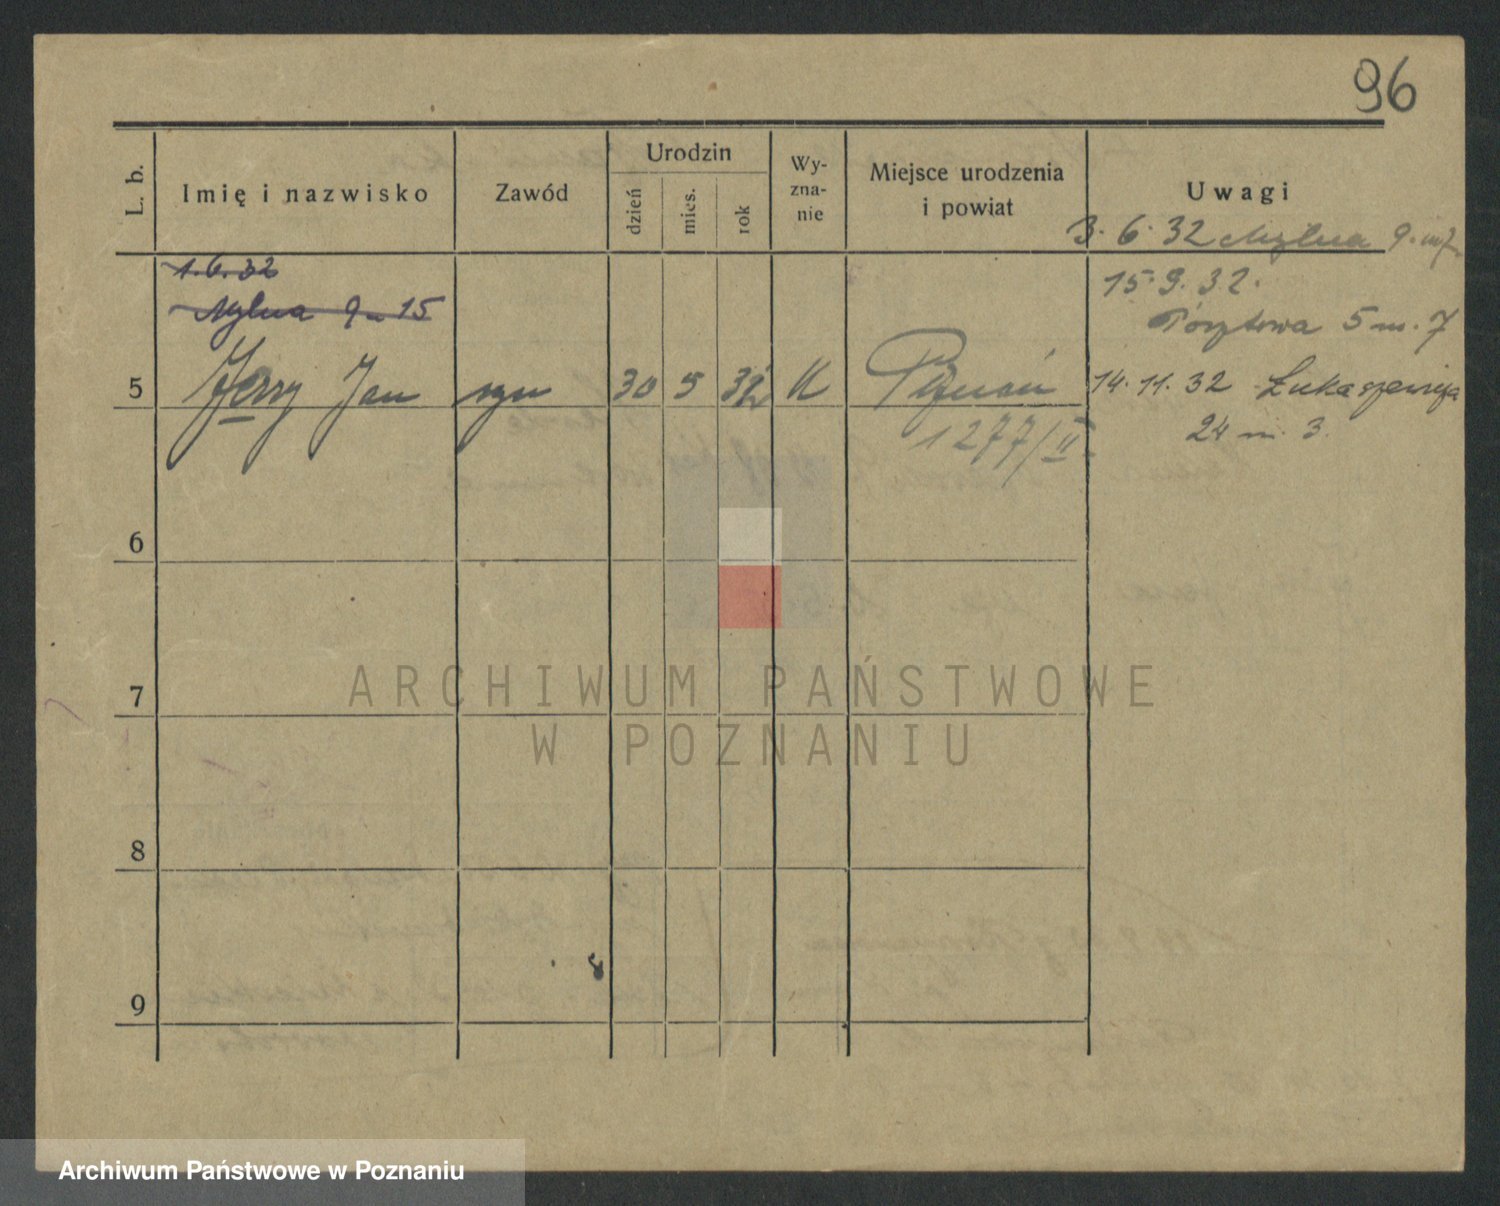 96
L. b.
Imię i nazwisko
Zawód
Urodzin
dzień
mies.
rok
Wy-
zna-
nie
Miejsce urodzenia
i powiat
Uwagi
3. 6. 32 Mylna 9. m 7
1. 6. 32
Mylna 9 m 15
15. 9. 32.
Pocztowa 5 m. 7
5 Jerzy Jan syn 30 5 32 K Poznań
14. 11. 32 Łukaszewicza
1277/II.
24 m. 3.
6
7
8
9
ARCHIWUM PAŃSTWOWE
W POZNANIU
Archiwum Państwowe w Poznaniu